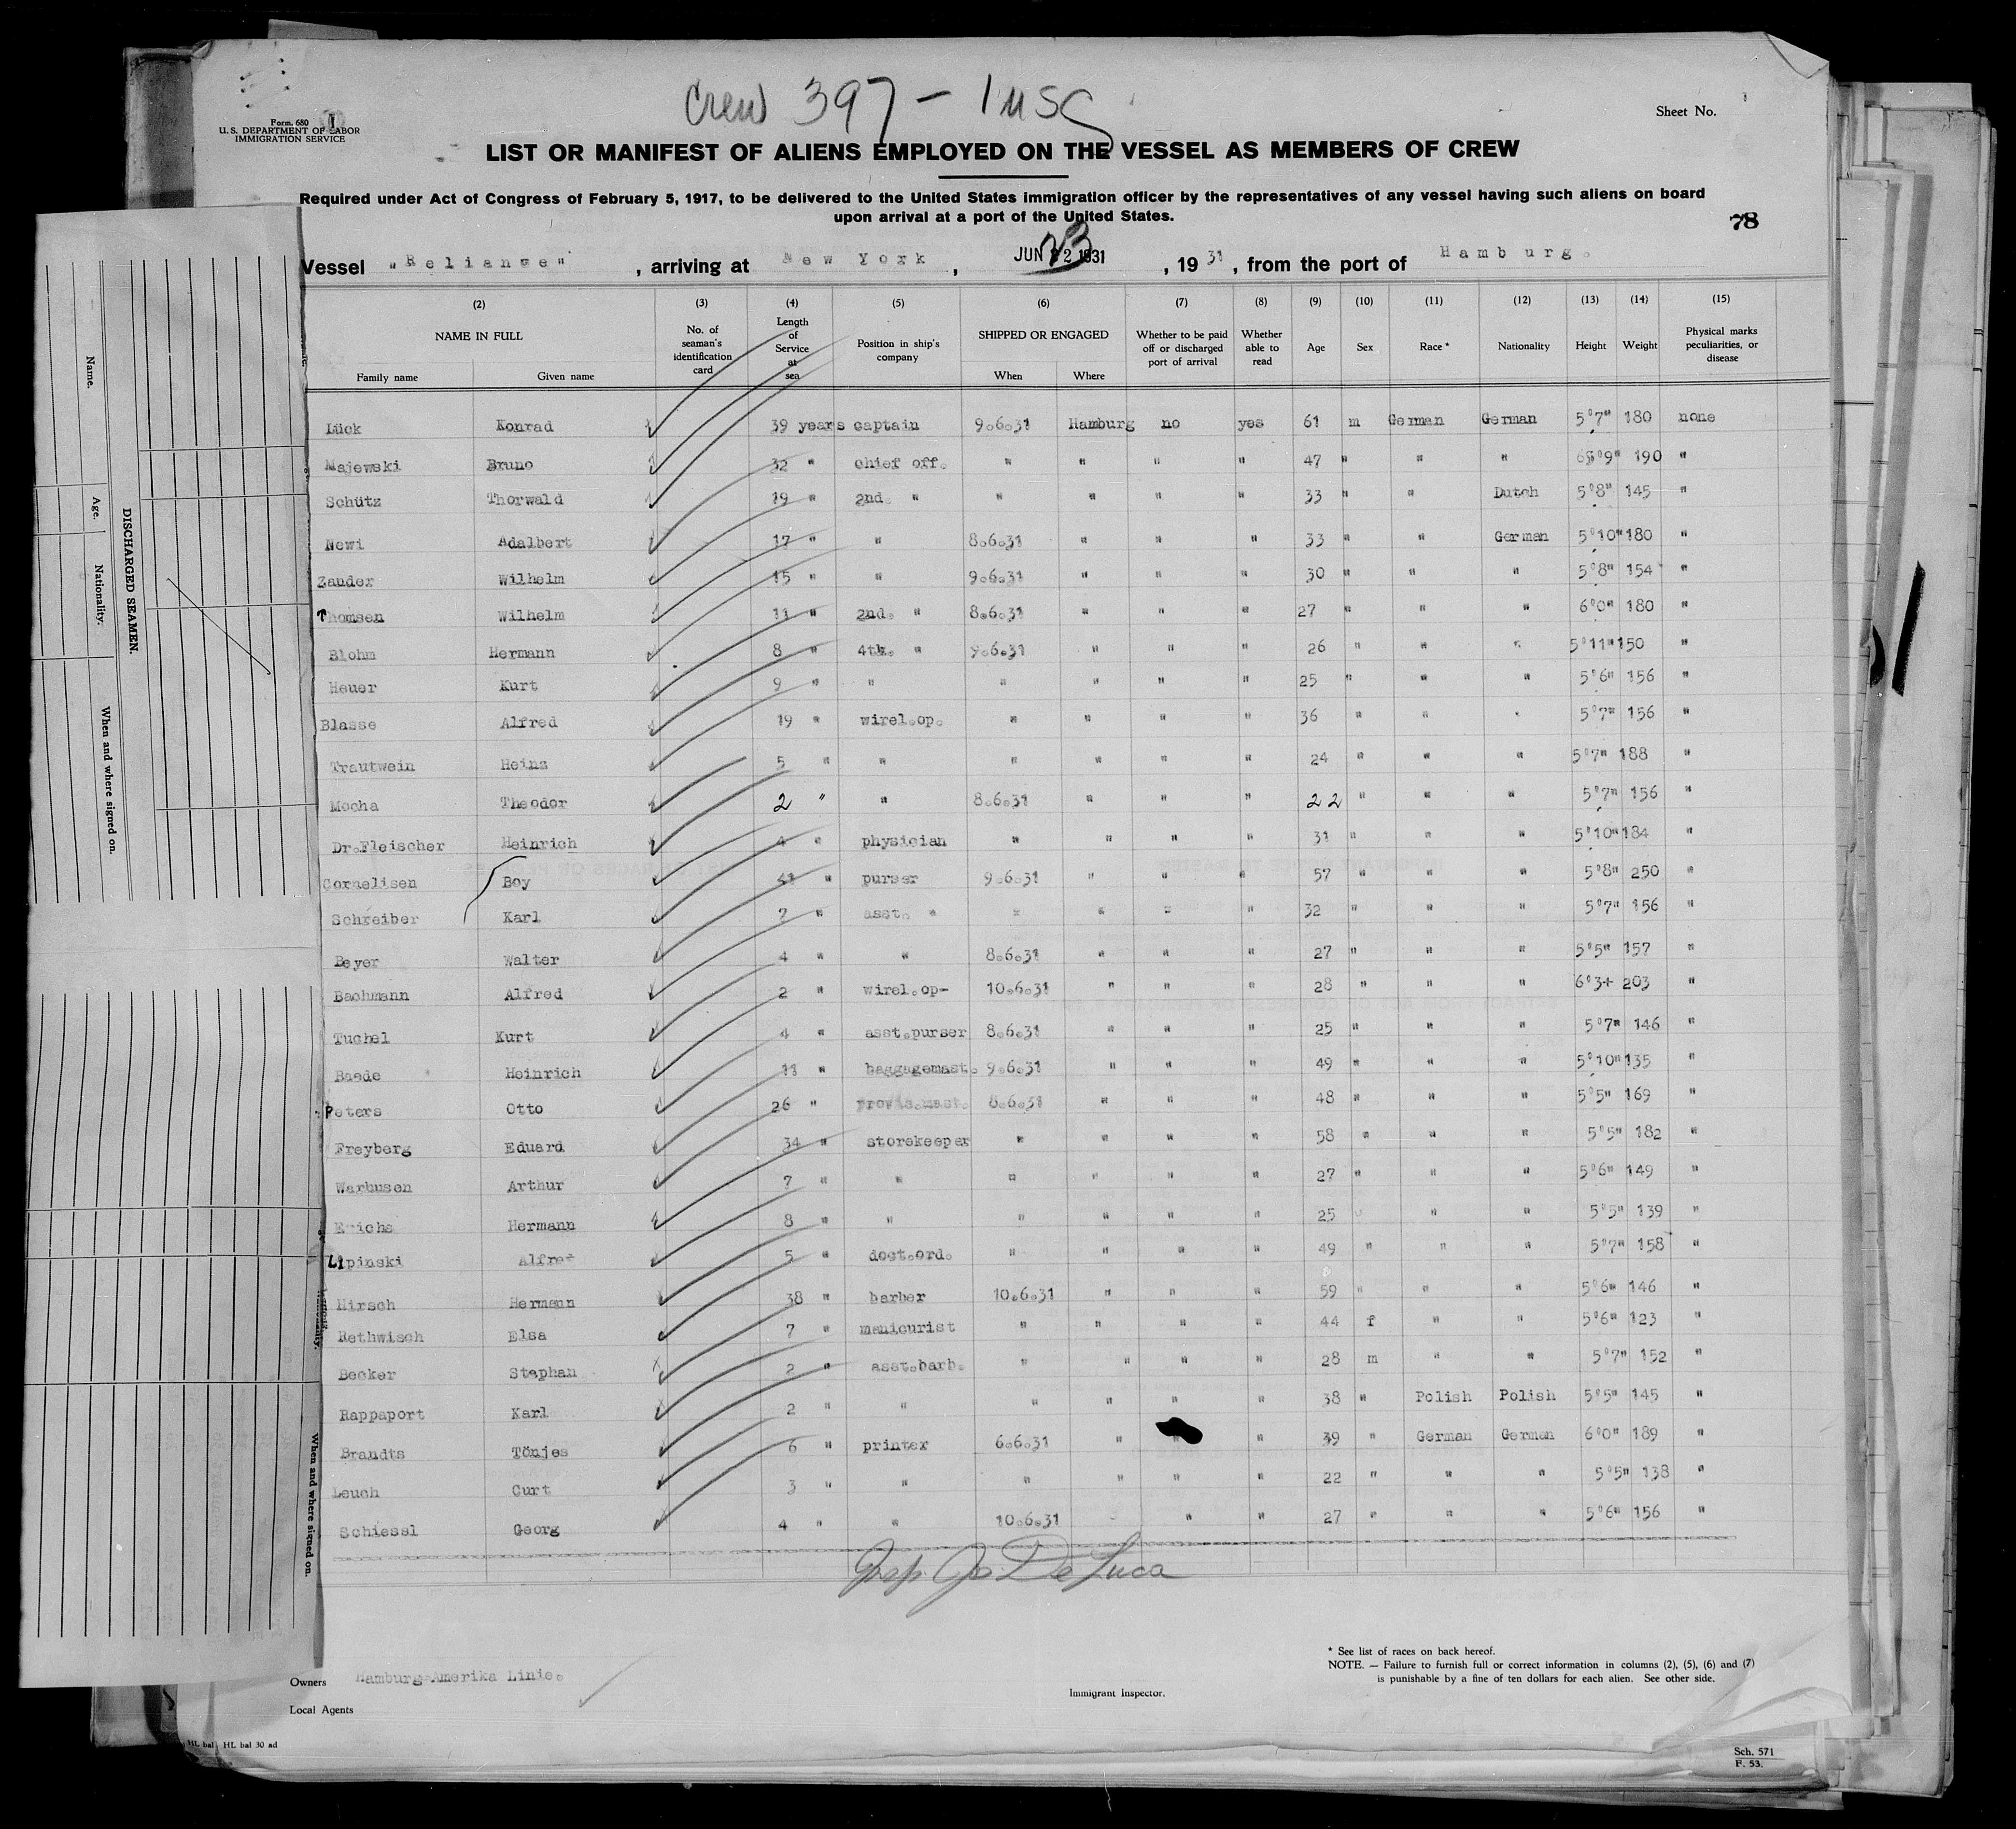 Crew 397 -
Form. 680
U. S. DEPARTMENT OF LABOR
IMMIGRATION SERVICE
Sheet No.
LIST OR MANIFEST OF ALIENS EMPLOYED ON THE VESSEL AS MEMBERS OF CREW
Required under Act of Congress of February 5, 1917, to be delivered to the United States immigration officer by the representatives of any vessel having such aliens on board
upon arrival at a port of the United States.
78
Vessel "Reliance", arriving at New York, JUN 23 1931, 1931, from the port of Hamburg.
(2) (3) (4) (5) (6) (7) (8) (9) (10) (11) (12) (13) (14) (15)
NAME IN FULL No. of seaman's identification card Length of Service at sea Position in ship's company SHIPPED OR ENGAGED Whether to be paid off or discharged port of arrival Whether able to read Age Sex Race * Nationality Height Weight Physical marks peculiarities, or disease
Family name Given name When Where
Lück Konrad 39 years captain 9.6.31 Hamburg no yes 61 m German German 5'7" 180 none
Majewski Bruno 32 " chief off. " " " " 47 " " " 9" 190 "
Schütz Thorwald 19 " 2nd. " " " " " 33 " " Dutch 5'8" 145 "
Newi Adalbert 17 " " 8.6.31 " " " 33 " " German 5'10" 180 "
Zander Wilhelm 15 " " 9.6.31 " " " 30 " " " 5'8" 154 "
Thomsen Wilhelm 11 " 2nd. " 8.6.31 " " " 27 " " " 6'0" 180 "
Blohm Hermann 8 " 4th. " 9.6.31 " " " 26 " " " 5'11" 150 "
Heuer Kurt 9 " " " " " " 25 " " " 5'6" 156 "
Blasse Alfred 19 " wirel.op. " " " " 36 " " " 5'7" 156 "
Trautwein Heinz 5 " " " " " " 24 " " " 5'7" 188 "
Mocha Theodor 2 " " 8.6.31 " " " 22 " " " 5'7" 156 "
Dr.Fleischer Heinrich 4 " physician " " " " 31 " " " 5'10" 184 "
Cornelisen Boy 41 " purser 9.6.31 " " " 57 " " " 5'8" 250 "
Schreiber Karl 7 " asst. " " " " " 32 " " " 5'7" 156 "
Beyer Walter 4 " " 8.6.31 " " " 27 " " " 5'5" 157 "
Bachmann Alfred 2 " wirel.op- 10.6.31 " " " 28 " " " 6'3+ 203 "
Tuchel Kurt 4 " asst.purser 8.6.31 " " " 25 " " " 5'7" 146 "
Baede Heinrich 11 " baggagemast. 9.6.31 " " " 49 " " " 5'10" 135 "
Peters Otto 26 " provis.mast. 8.6.31 " " " 48 " " " 5'5" 169 "
Freyberg Eduard 34 " storekeeper " " " " 58 " " " 5'5" 182 "
Warbusen Arthur 7 " " " " " " 27 " " " 5'6" 149 "
Erichs Hermann 8 " " " " " " 25 " " " 5'5" 139 "
Lipinski Alfred 5 " doct.ord. " " " " 49 " " " 5'7" 158 "
Hirsch Hermann 38 " barber 10.6.31 " " " 59 " " " 5'6" 146 "
Rethwisch Elsa 7 " manicurist " " " " 44 f " " 5'6" 123 "
Becker Stephan 2 " asst.barb. " " " " 28 m " " 5'7" 152 "
Rappaport Karl 2 " " " " " " 38 " Polish Polish 5'5" 145 "
Brandts Tönjes 6 " printer 6.6.31 " " " 39 " German German 6'0" 189 "
Leuch Curt 3 " " " " " " 22 " " " 5'5" 138 "
Schiessl Georg 4 " " 10.6.31 " " " 27 " " " 5'6" 156 "
De Luca
* See list of races on back hereof.
NOTE. — Failure to furnish full or correct information in columns (2), (5), (6) and (7)
is punishable by a fine of ten dollars for each alien. See other side.
Owners Hamburg-Amerika Linie.
Immigrant Inspector.
Local Agents
HL bal HL bal 30 ad
Sch. 571
F. 53.
DISCHARGED SEAMEN.
Name.
Age.
Nationality.
When and where signed on.
When and where signed on.